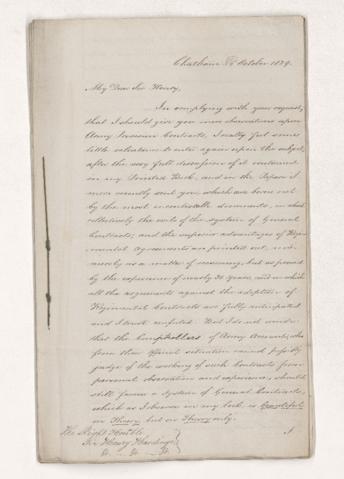 Chatham October 1829.
My Dear Sir Henry,
In complying with your request,
that I should give you some observations upon
Army Provision Contracts, I really feel some
little reluctance to enter again upon the subject,
after the very full discussion of it contained
in my Printed Book, and in the Papers I
more recently sent you, which are borne out
by the most incontestable documents, in which
collectively the evils of the system of General
Contracts, and the superior advantages of Regi-
mental Agreements are pointed out, not
merely as a matter of reasoning, but as proved
by the experience of nearly 30 Years, and in which
all the arguments against the adoption of
Regimental Contracts are fully anticipated
and I trust refuted. But I do not wonder
that the Comptrollers of Army Accounts, who
from their official situation cannot possibly
judge of the working of such Contracts from
personal observation and experience, should
still favor a System of General Contracts,
which as I observe in my book, is Beautiful
in Theory but in Theory only.
The Right Honble
Sir Henry Hardinge
&c. &c. &c.